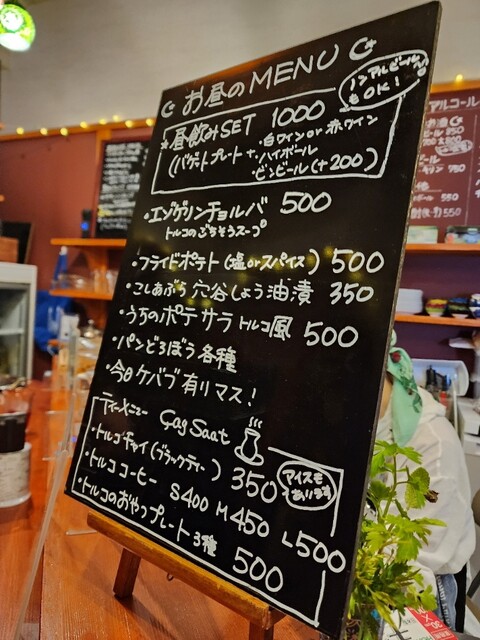 お昼のMENU
ノンアルビール
もOK!
*昼飲みSET 1000
・白ワイン or 赤ワイン
・ハイボール
・ビンビール(+200)
・エゾゲリンチョルバ 500
トルコのごちそうスープ
・フライドポテト(塩orスパイス) 500
・こしあぶら 穴谷しょう油漬 350
・うちのポテサラ トルコ風 500
・パンどろぼう 各種
・今日ケバブ有リマス!
ティーメニュー Çay Saat
・トルコチャイ(ブラックティー) 350
アイスも
あります
・トルココーヒー S400 M450 L500
・トルコのおやつプレート 3種 500
アルコール